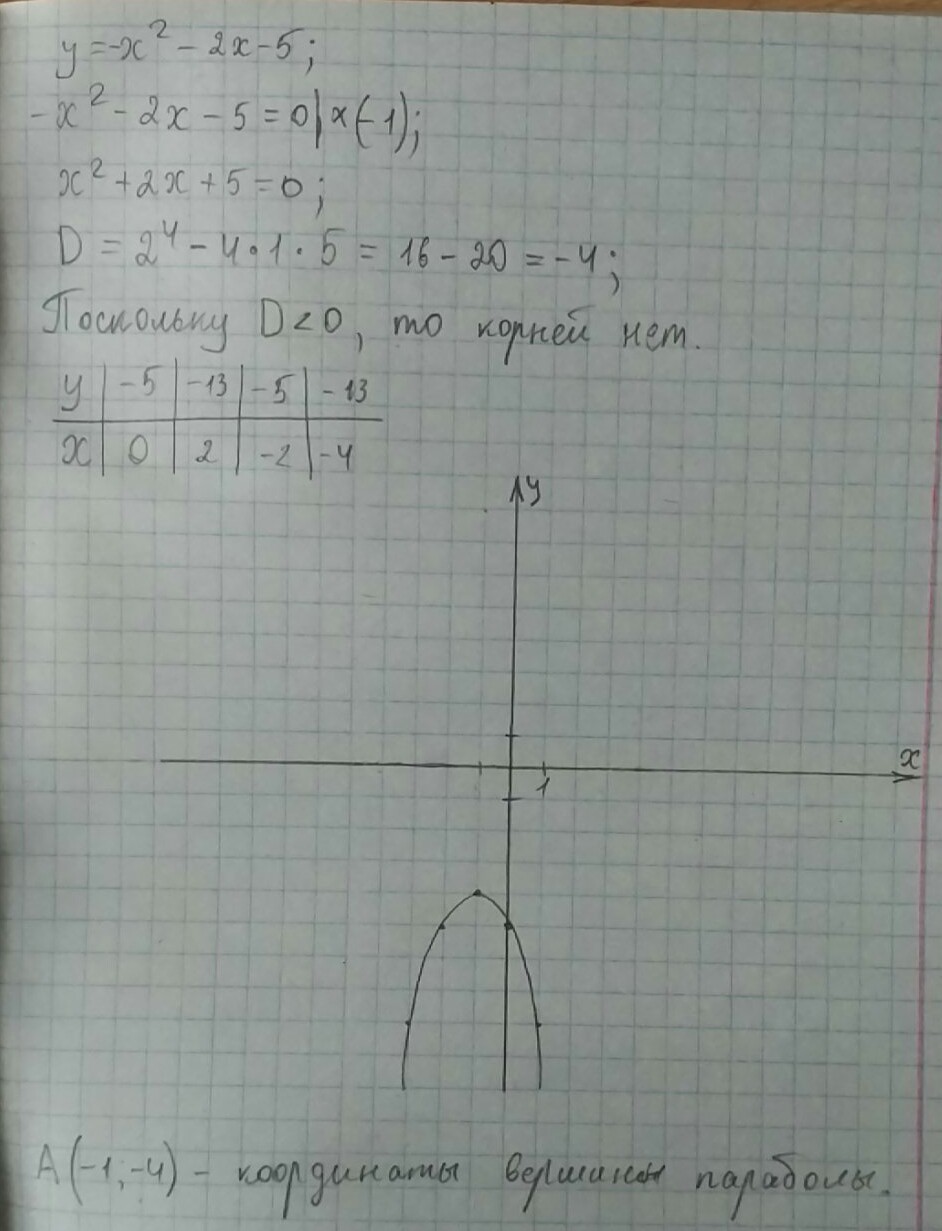 y = -x² - 2x - 5;
-x² - 2x - 5 = 0 | x(-1);
x² + 2x + 5 = 0;
D = 2⁴ - 4·1·5 = 16 - 20 = -4;
Поскольку D < 0, то корней нет.
y | -5 | -13 | -5 | -13
x | 0 | 2 | -2 | -4
y
x
1
A(-1; -4) - координаты вершины параболы.